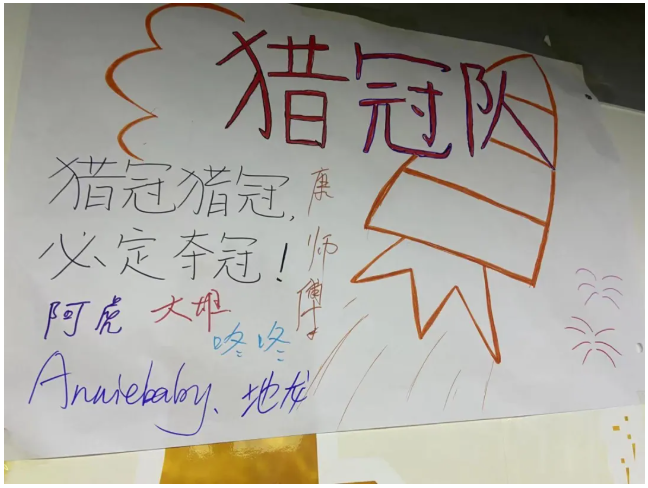 猎冠队
猎冠猎冠,
必定夺冠!
康师傅
阿虎 大雄
咚咚
Anniebaby、地龙